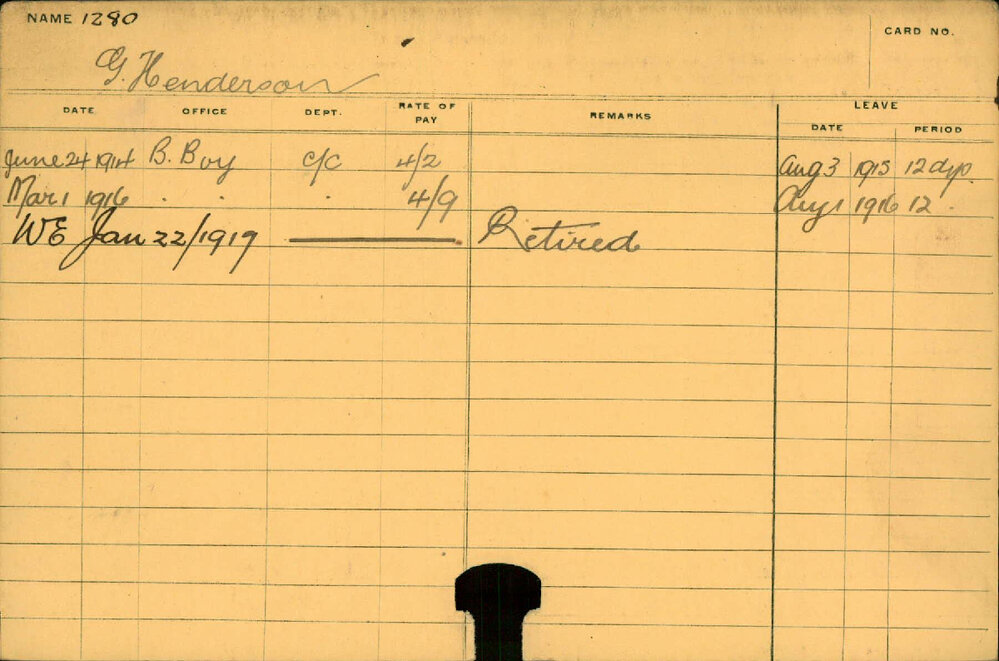 NAME 1280
CARD NO.
G. Henderson
DATE OFFICE DEPT. RATE OF PAY REMARKS LEAVE
DATE PERIOD
June 24 1914 B. Boy C/C 4/2 Aug 3 1915 12 dys
Mar 1 1916 . . . 4/9 Aug 1 1916 12 .
WE Jan 22/1919 Retired